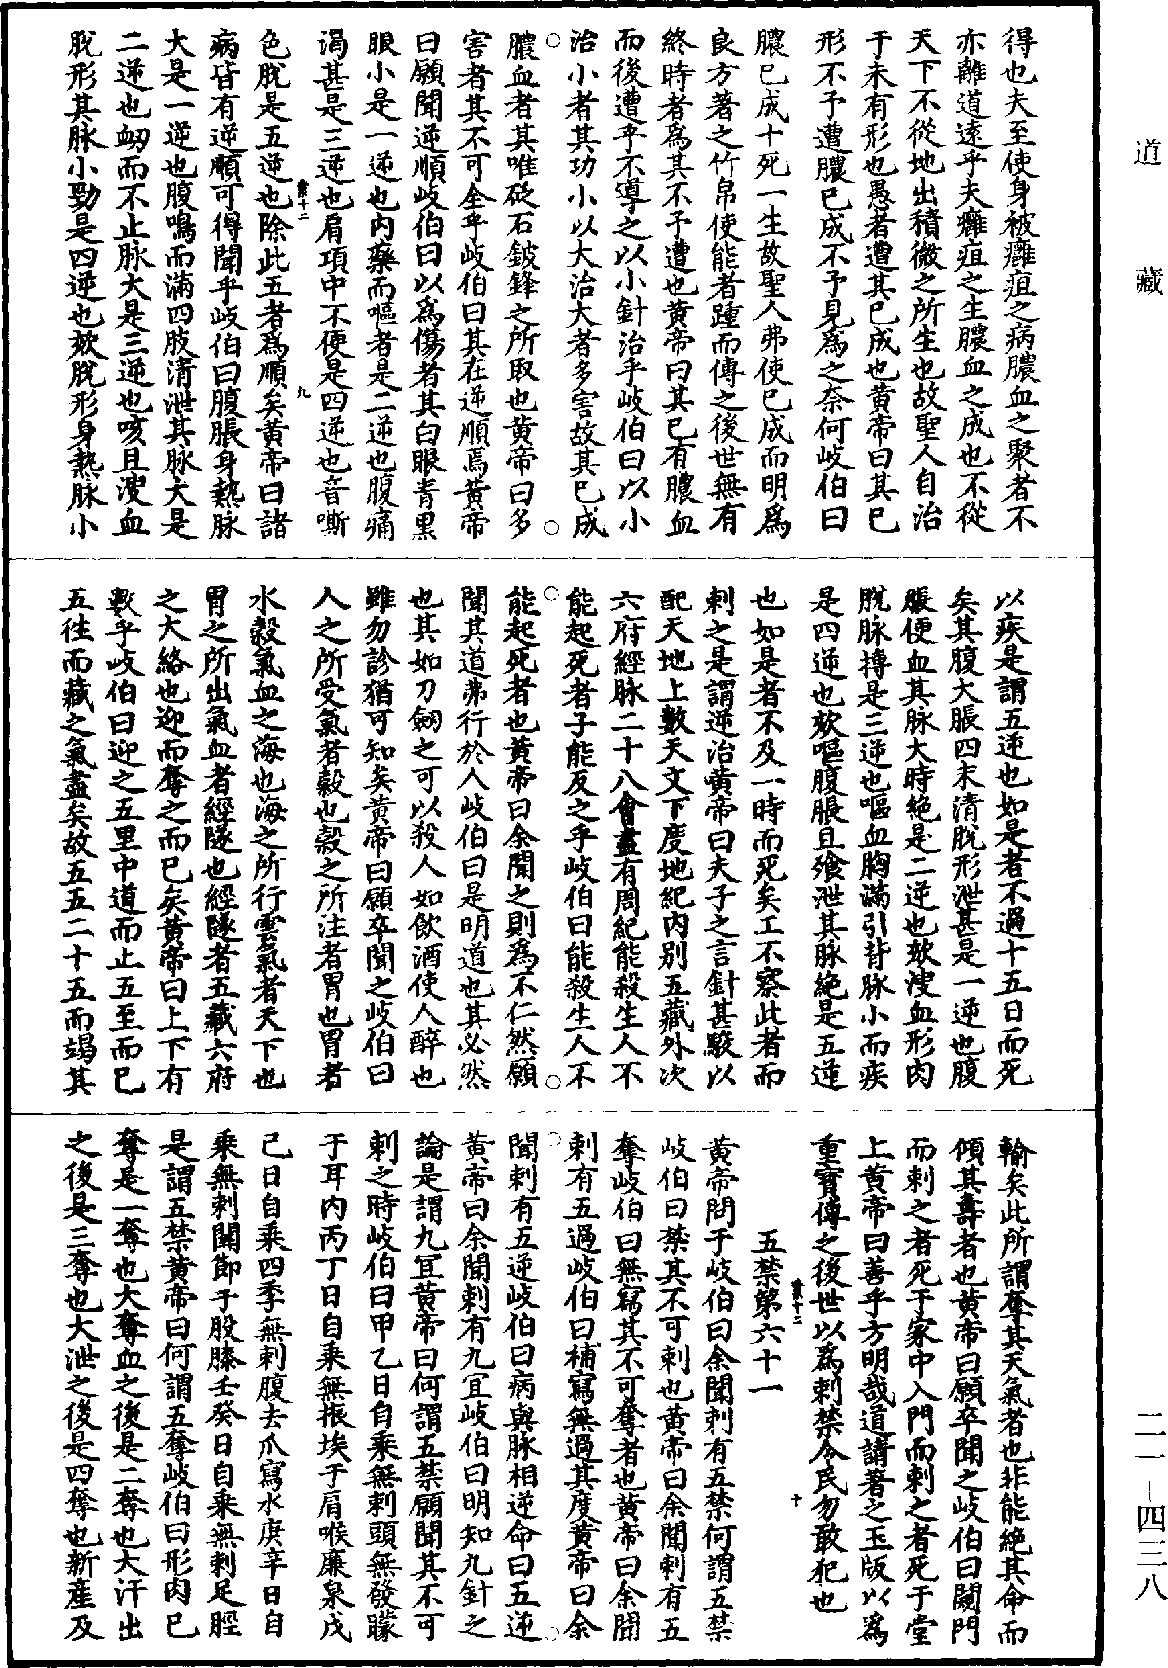 道藏
得也夫至使身被癰疽之病膿血之聚者不
亦離道遠乎夫癰疽之生膿血之成也不從
天下不從地出積微之所生也故聖人自治
于未有形也愚者遭其已成也黃帝曰其已
形不予遭膿已成不予見爲之奈何岐伯曰
膿已成十死一生故聖人弗使已成而明爲
良方著之竹帛使能者踵而傳之後世無有
終時者爲其不予遭也黃帝曰其已有膿血
而後遭乎不導之以小針治乎岐伯曰以小
治小者其功小以大治大者多害故其已成
膿血者其唯砭石鈹鋒之所取也黃帝曰多
害者其不可全乎岐伯曰其在逆順焉黃帝
曰願聞逆順岐伯曰以爲傷者其白眼青黑
眼小是一逆也內藥而嘔者是二逆也腹痛
渴甚是三逆也肩項中不便是四逆也音嘶
色脫是五逆也除此五者爲順矣黃帝曰諸
病皆有逆順可得聞乎岐伯曰腹脹身熱脉
大是一逆也腹鳴而滿四肢清泄其脉大是
二逆也衂而不止脉大是三逆也咳且溲血
脫形其脉小勁是四逆也欬脫形身熱脉小
以疾是謂五逆也如是者不過十五日而死
矣其腹大脹四末清脫形泄甚是一逆也腹
脹便血其脉大時絕是二逆也欬溲血形肉
脫脉摶是三逆也嘔血胸滿引背脉小而疾
是四逆也欬嘔腹脹且飧泄其脉絕是五逆
也如是者不及一時而死矣工不察此者而
刺之是謂逆治黃帝曰夫子之言針甚駿以
配天地上數天文下度地紀內別五藏外次
六府經脉二十八會盡有周紀能殺生人不
能起死者子能反之乎岐伯曰能殺生人不
能起死者也黃帝曰余聞之則爲不仁然願
聞其道弗行於人岐伯曰是明道也其必然
也其如刀劒之可以殺人如飲酒使人醉也
雖勿診猶可知矣黃帝曰願卒聞之岐伯曰
人之所受氣者穀也穀之所注者胃也胃者
水穀氣血之海也海之所行雲氣者天下也
胃之所出氣血者經隧也經隧者五藏六府
之大絡也迎而奪之而已矣黃帝曰上下有
數乎岐伯曰迎之五里中道而止五至而已
五徃而藏之氣盡矣故五五二十五而竭其
輸矣此所謂奪其天氣者也非能絕其命而
傾其壽者也黃帝曰願卒聞之岐伯曰闚門
而刺之者死于家中入門而刺之者死于堂
上黃帝曰善乎方明哉道請著之玉版以爲
重寶傳之後世以爲刺禁令民勿敢犯也
五禁第六十一
黃帝問于岐伯曰余聞刺有五禁何謂五禁
岐伯曰禁其不可刺也黃帝曰余聞刺有五
奪岐伯曰無寫其不可奪者也黃帝曰余聞
刺有五過岐伯曰補寫無過其度黃帝曰余
聞刺有五逆岐伯曰病與脉相逆命曰五逆
黃帝曰余聞刺有九宜岐伯曰明知九針之
論是謂九宜黃帝曰何謂五禁願聞其不可
刺之時岐伯曰甲乙日自乘無刺頭無發矇
于耳內丙丁日自乘無振埃于肩喉廉泉戊
己日自乘四季無刺腹去爪寫水庚辛日自
乘無刺關節于股膝壬癸日自乘無刺足脛
是謂五禁黃帝曰何謂五奪岐伯曰形肉已
奪是一奪也大奪血之後是二奪也大汗出
之後是三奪也大泄之後是四奪也新產及
二一—四三八